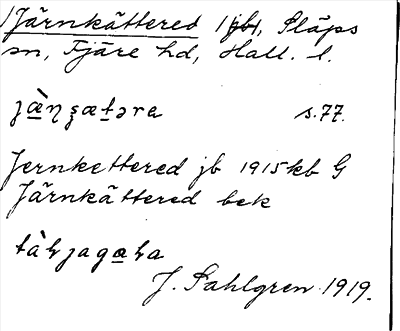 Järnkättered 1 jb, Släps
sn, Fjäre hd, Hall. l.
s. 77.
Jernkettered jb 1915 kb G
Järnkättered bek
J. Sahlgren 1919.